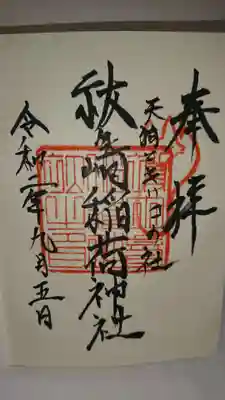 奉拝
天狗
の社
祓ヶ崎稲荷神社
令和二年九月五日